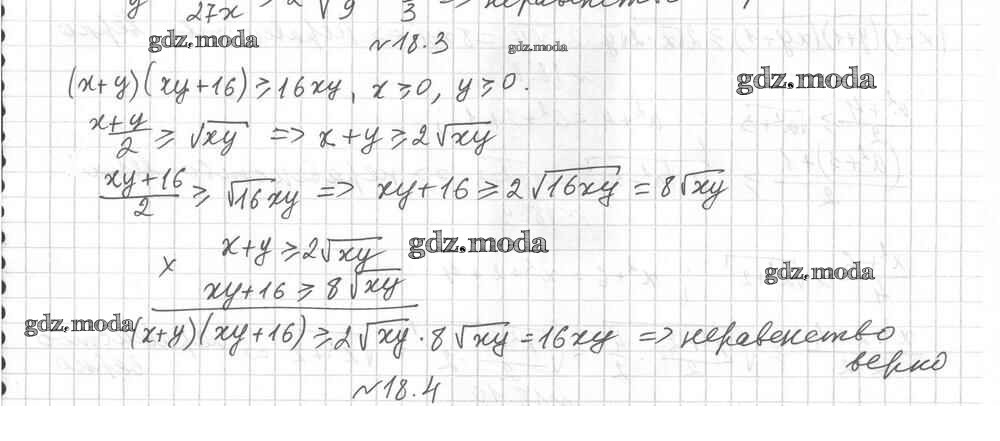 27x 2√9 3 => неравенство
gdz.moda
№18.3
gdz.moda
gdz.moda
(x+y)(xy+16)≥16xy, x≥0, y≥0.
(x+y)/2 ≥ √xy => x+y≥2√xy
(xy+16)/2 ≥ √16xy => xy+16≥2√16xy = 8√xy
x+y≥2√xy
gdz.moda
x
xy+16≥8√xy
gdz.moda
gdz.moda
(x+y)(xy+16)≥2√xy·8√xy=16xy => неравенство
верно
№18.4